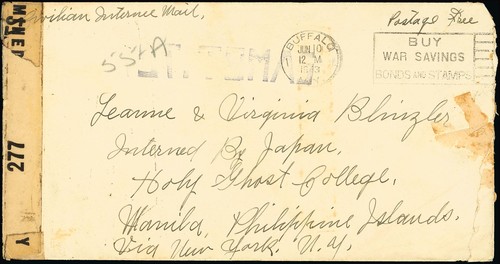 Civilian Internee Mail.
Postage Free
BUFFALO
JUN 10
12 M
BUY
WAR SAVINGS
BONDS AND STAMPS
Leanne & Virginia Blinzler
Interned By Japan,
Holy Ghost College,
Manila, Philippine Islands.
Via New York. N.Y.
277